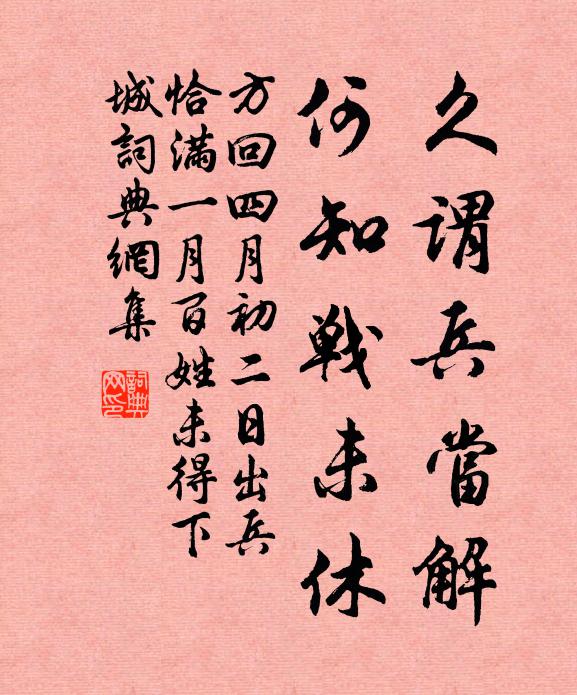 久謂兵當解
何知戰未休
方回四月初二日出兵
恰滿一月百姓未得下
城詞典網集
詞典网印